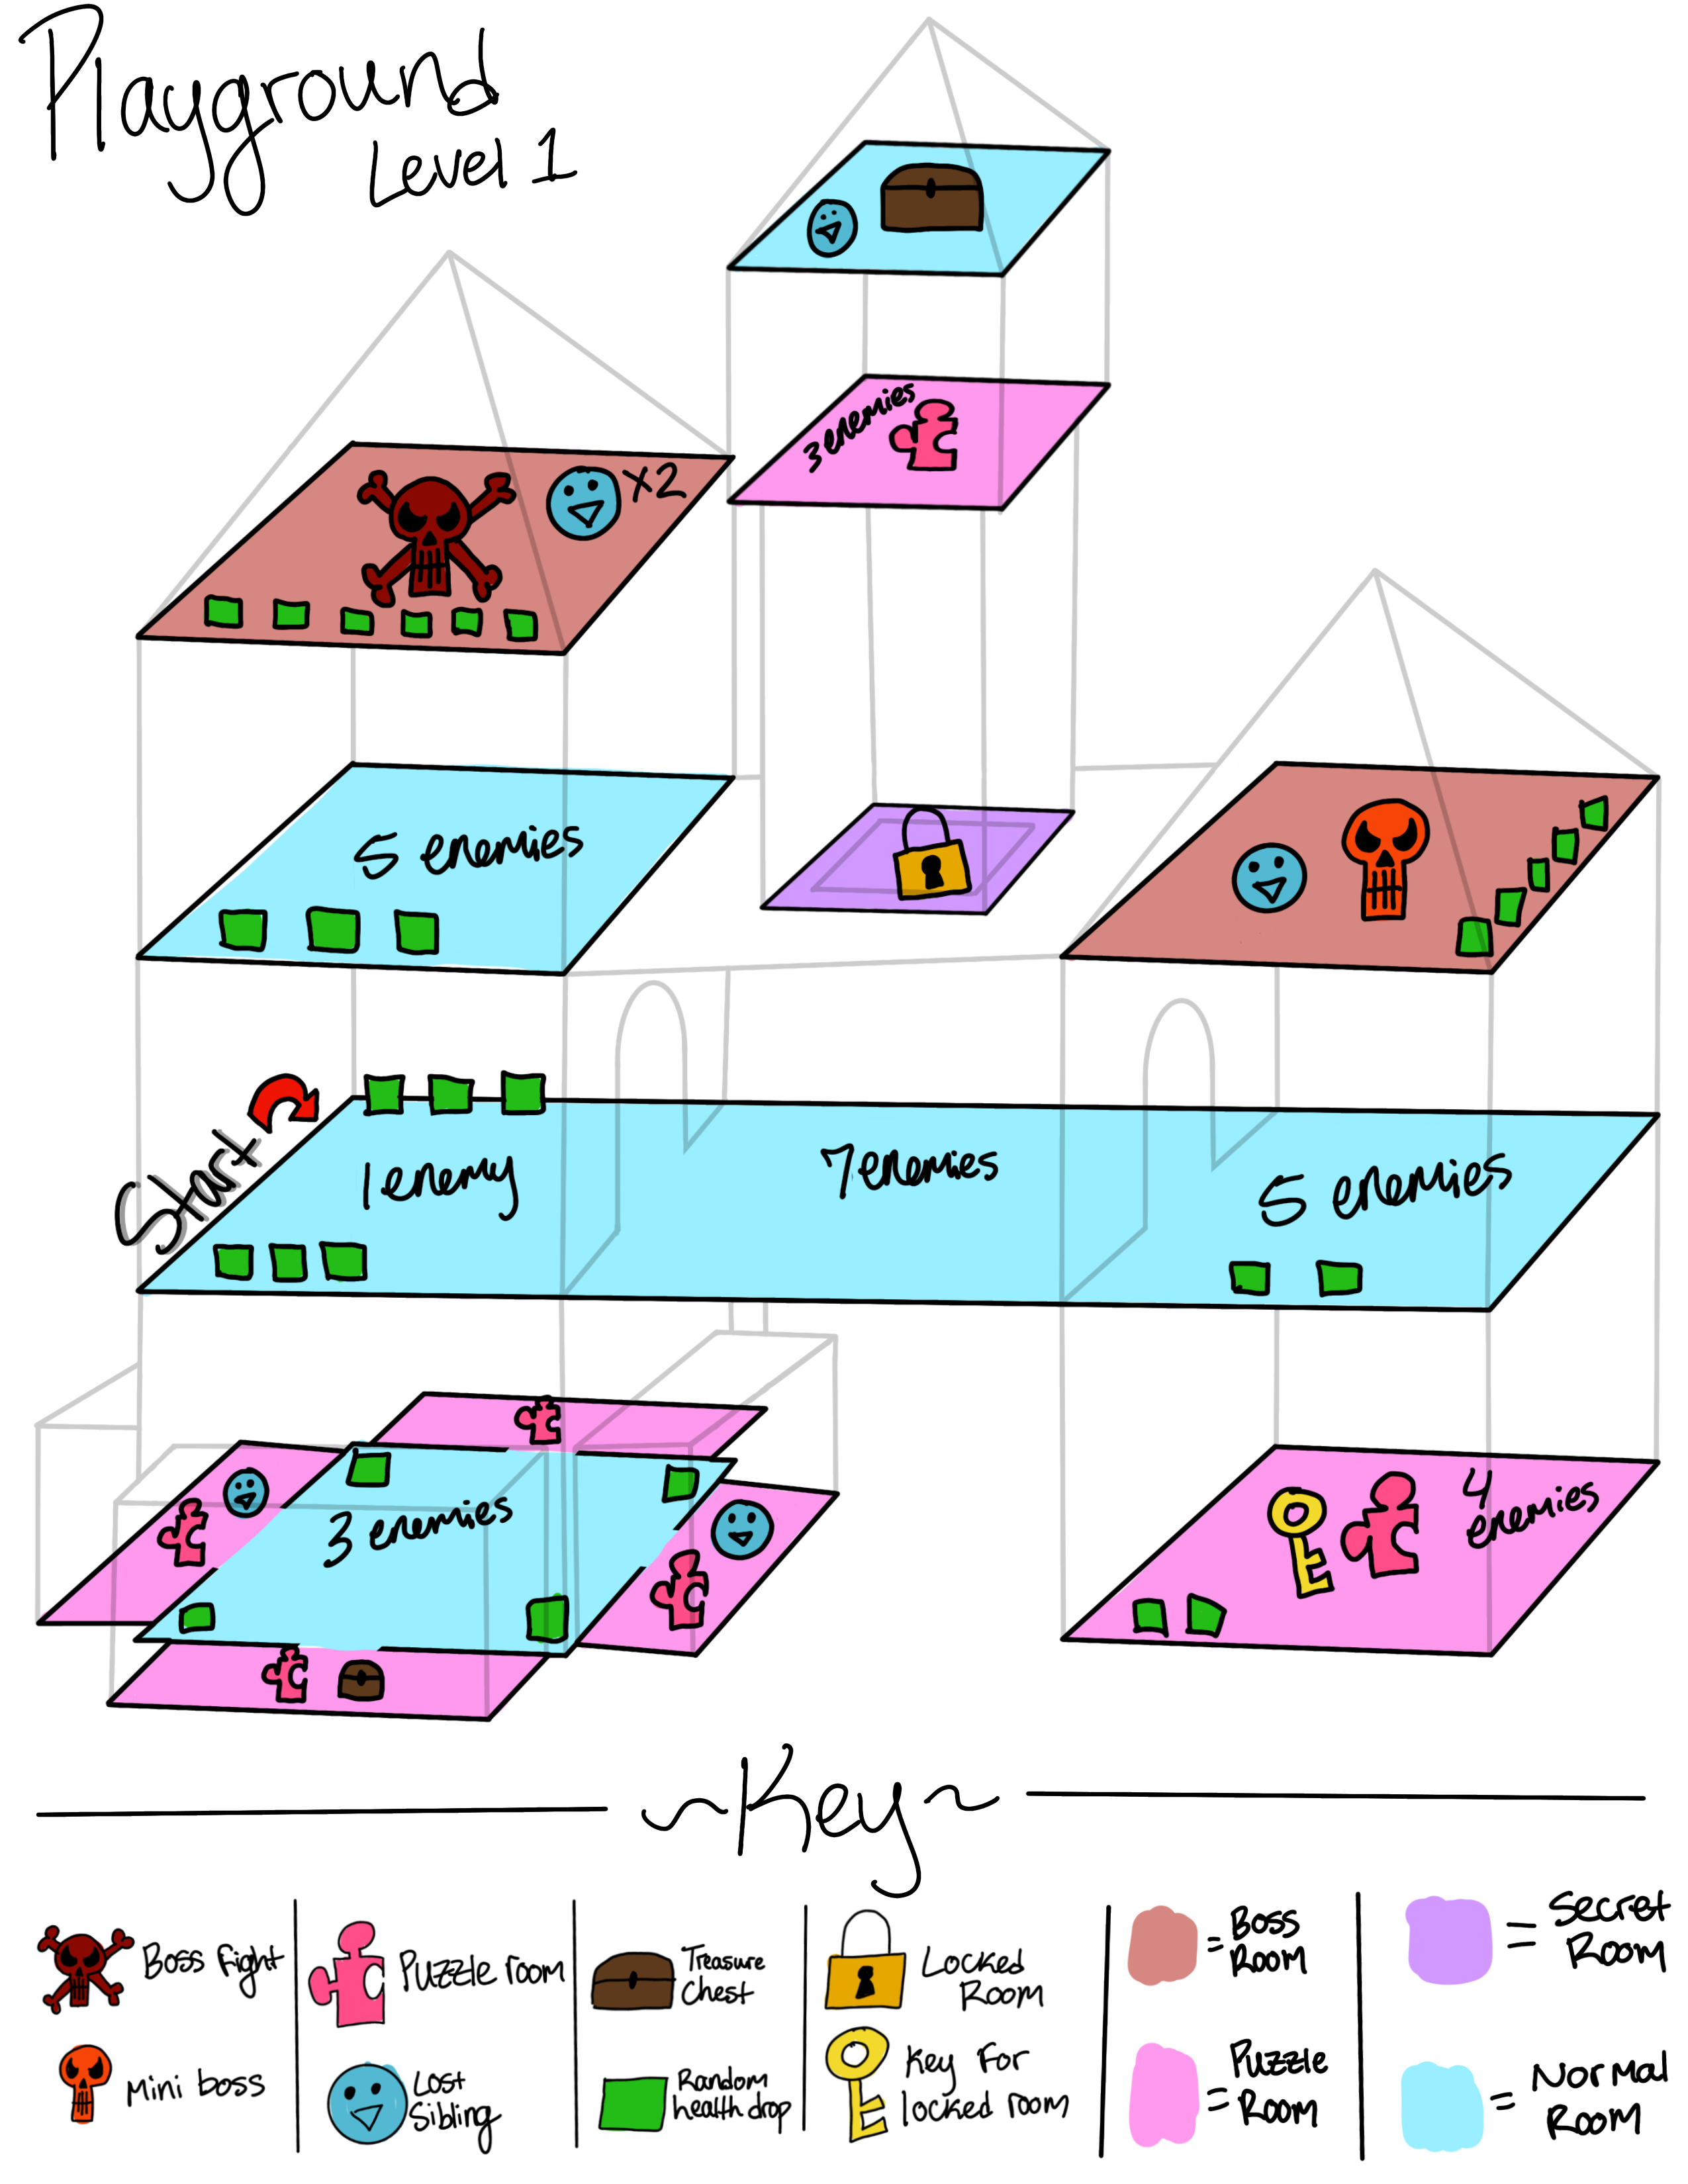 Playground
Level 1
3 enemies
x2
5 enemies
Start
1 enemy
7 enemies
5 enemies
3 enemies
4
enemies
~Key~
Boss fight
Mini boss
Puzzle room
Lost
Sibling
Treasure
Chest
Random
health drop
Locked
Room
Key for
locked room
= Boss
Room
= Puzzle
Room
= Secret
Room
= Normal
Room